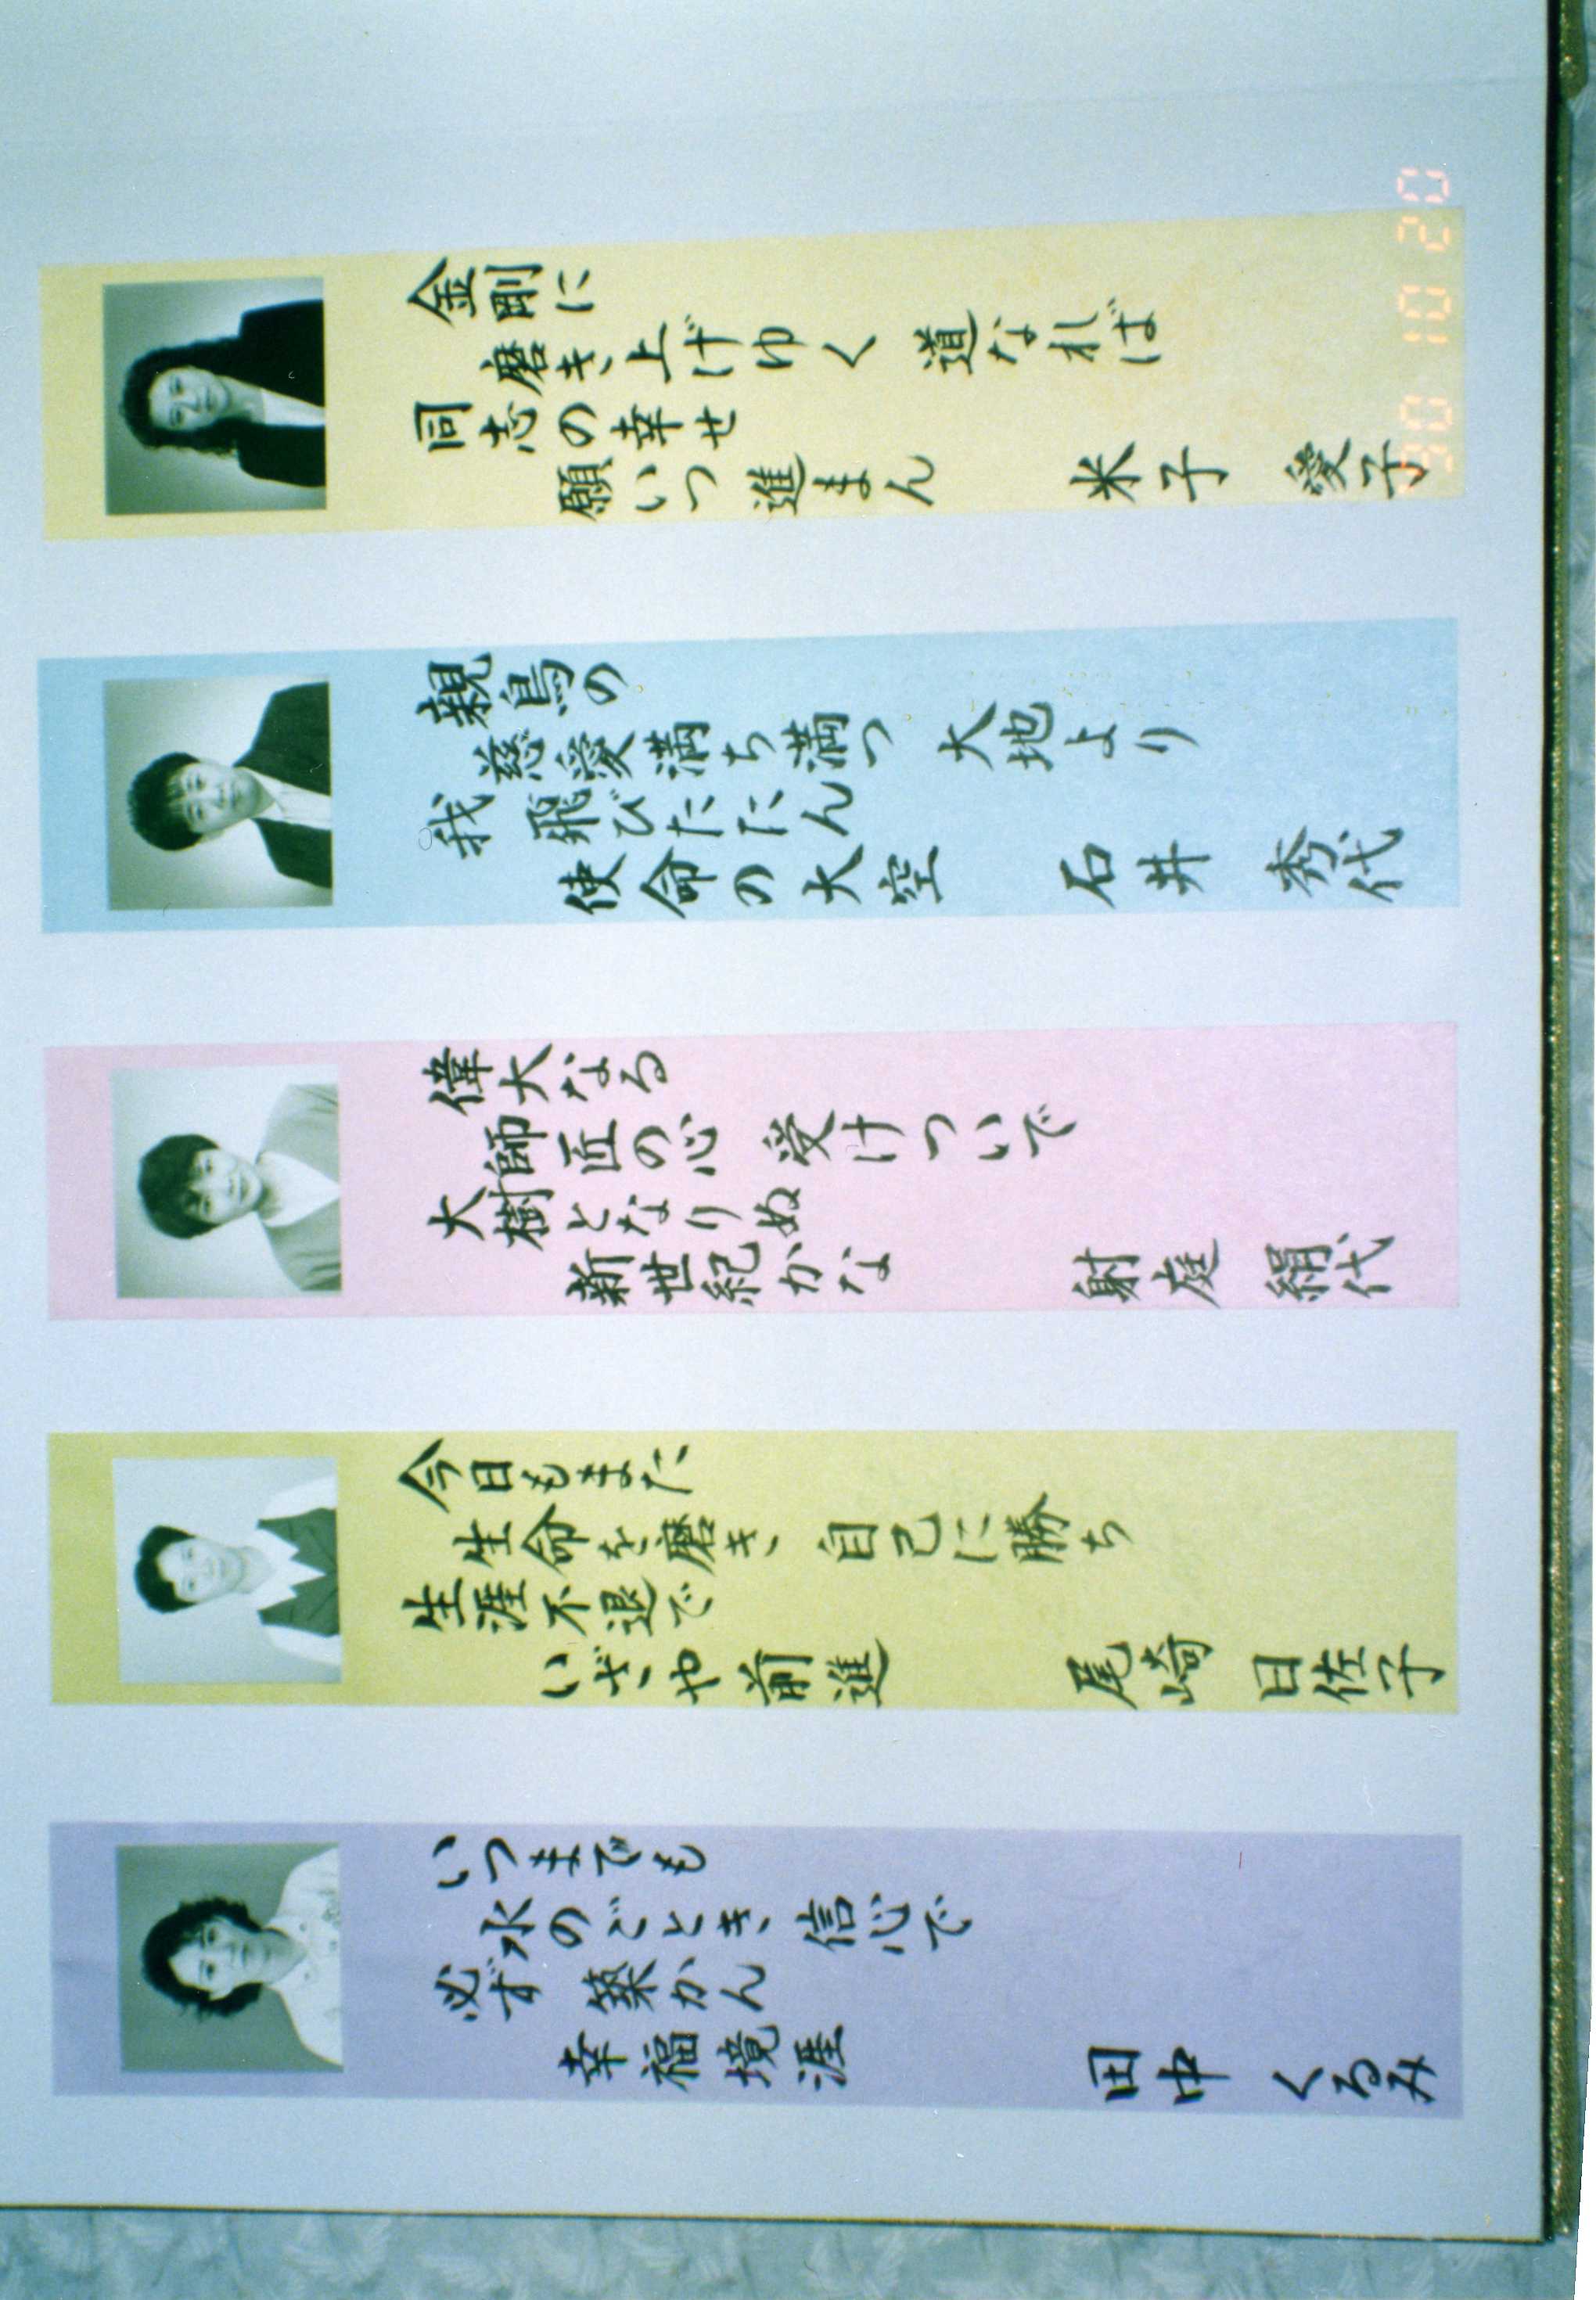 金剛に
磨き上げゆく 道なれば
同志の幸せ
願いつ進まん
米子 愛子
親鳥の
慈愛満ち満つ 大地より
我 飛びたたん
使命の大空
石井 秀代
偉大なる
師匠の心 受けついで
大樹となりぬ
新世紀かな
射庭 絹代
今日もまた
生命を磨き 自己に勝ち
生涯不退で
いざや前進
尾崎 日佐子
いつまでも
水のごとき 信心で
必ず 築かん
幸福境涯
田中 くるみ
10 20